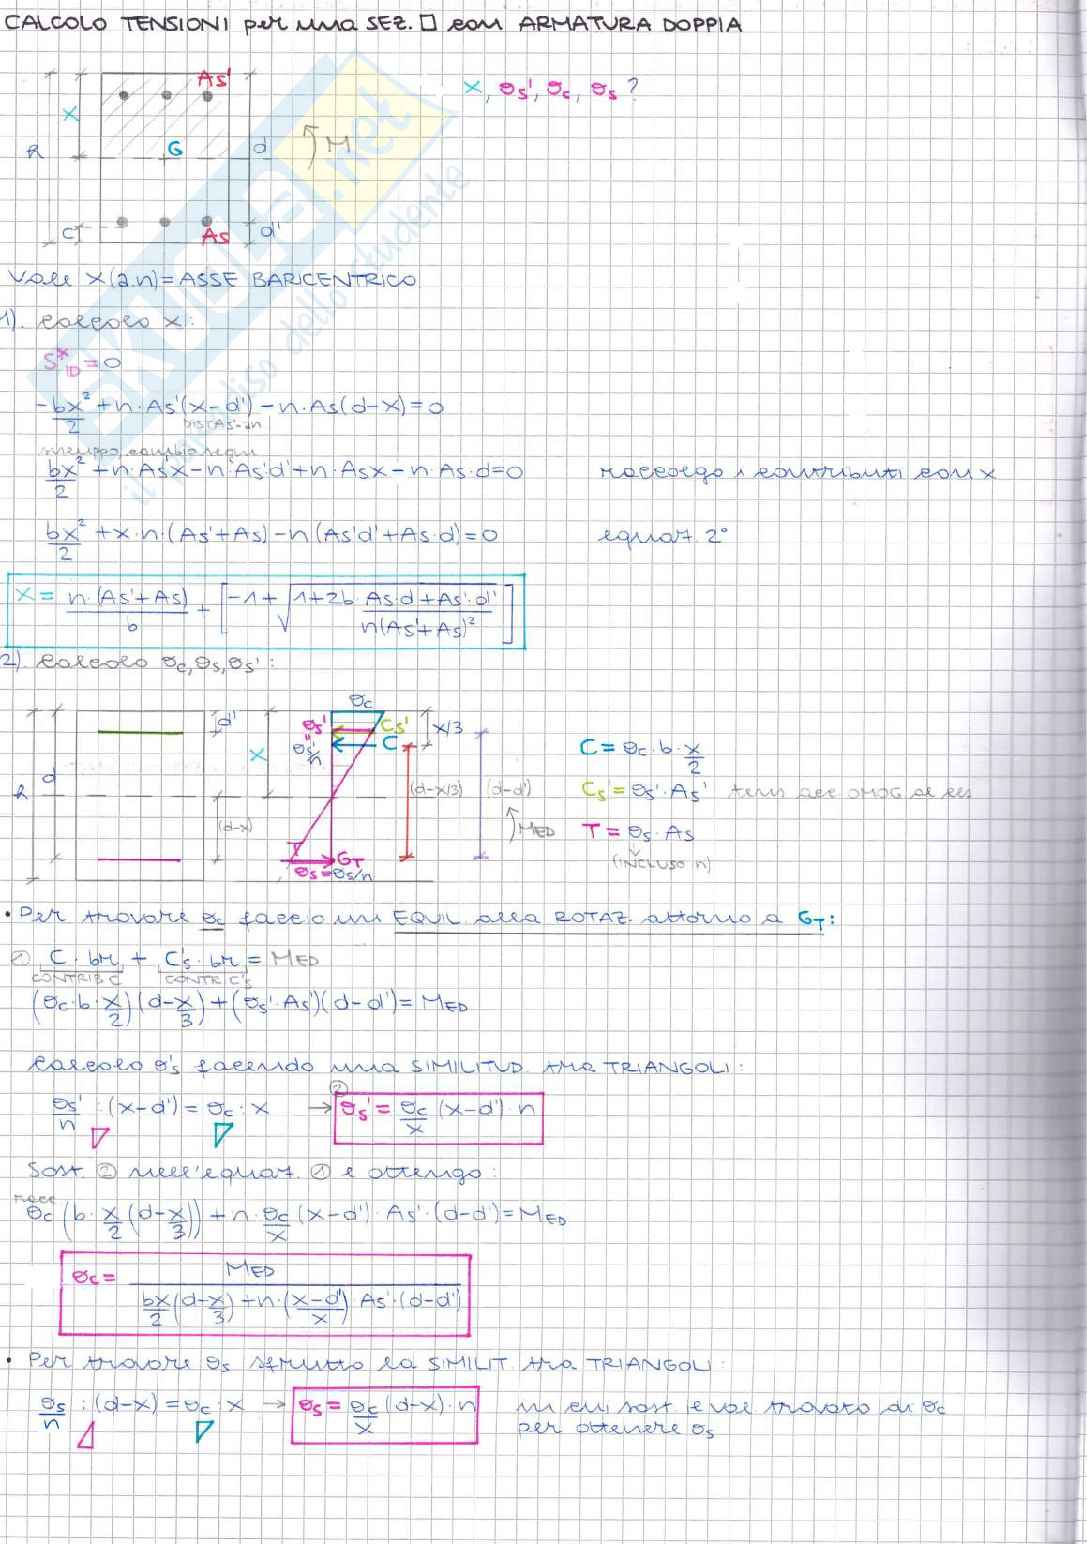 CALCOLO TENSIONI per una SEZ. □ con ARMATURA DOPPIA
As'
X, σs', σc, σs ?
X
h
G
d
M
c
As
d'
Vale X(a.n)=ASSE BARICENTRICO
1). calcolo x:
S*ID=0
-bx²/2 + n·As'(x-d') - n·As(d-x)=0
bx²/2 + n·As'x-n·As'd'+n·Asx-n·As·d=0 raccolgo i contributi con x
bx²/2 + x·n·(As'+As)-n(As'd'+As·d)=0 equaz. 2°
X = n·(As'+As)/b + [-1+√(1+2b·(As·d+As'·d')/(n(As'+As)²))]
2). calcolo σc,σs,σs':
σc
d'
σs'
Cs'
x/3
σs'/n
C
X
d
h
(d-x/3)
(d-d')
(d-x)
MED
T
GT
σs=σs/n
C = σc·b·x/2
Cs=σs'·As'
T = σs·As
(INCLUSO n)
• Per trovare σc faccio un EQUIL alla ROTAZ. attorno a GT:
① C·br + C's·br = MED
CONTRIB C CONTR C's
(σc·b·x/2)(d-x/3)+(σs'·As')(d-d')=MED
Calcolo σ's facendo una SIMILITUD. tra TRIANGOLI:
②
σs'/n : (x-d')=σc·x → σs'=σc/x (x-d')·n
Sost. ② nell'equaz. ① e ottengo:
racc
σc(b·x/2(d-x/3))+n·σc/x(x-d')·As'·(d-d')=MED
σc= MED/(bx/2(d-x/3)+n·((x-d')/x)As'·(d-d'))
• Per trovare σs sfrutto la SIMILIT. tra TRIANGOLI:
σs/n : (d-x)=σc·x → σs=σc/x(d-x)·n in cui sost. il val trovato di σc
per ottenere σs
SKUOLA.net
il paradiso dello studente